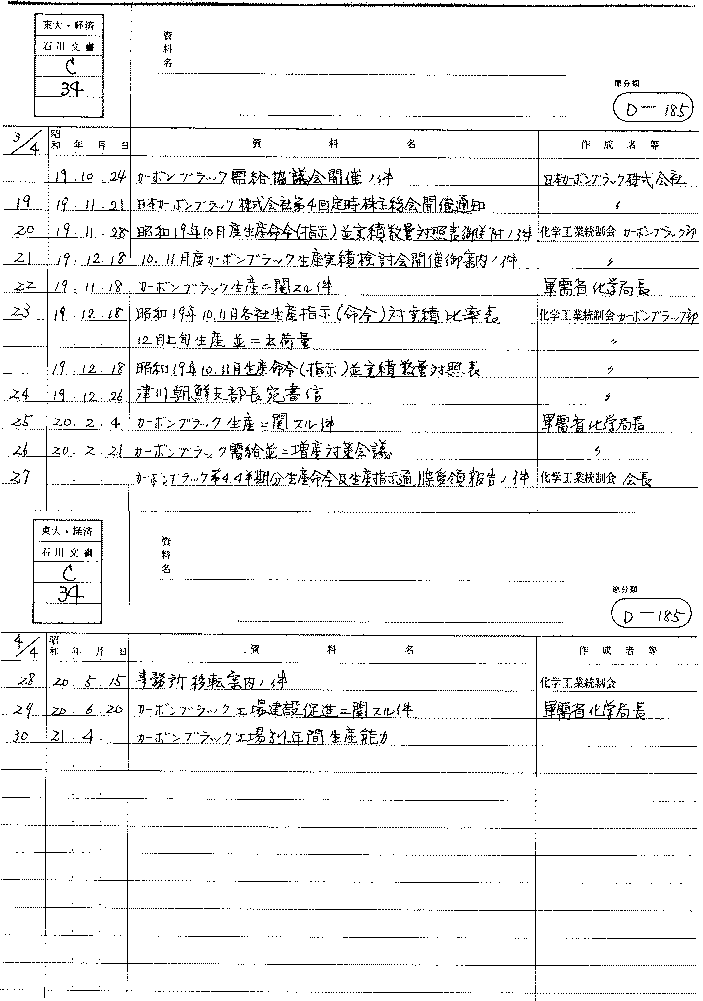 東大・経済
石川文書
C
34
資料名
節分類
D-185
3/4 昭和 年 月 日 資料名 作成者等
19.10.24 カーボンブラック需給協議会開催ノ件 日本カーボンブラック株式会社
19 19.11.21 日本カーボンブラック株式会社第4回定時株主総会開催通知 〃
20 19.11.28 昭和19年10月度生産命令(指示)並実績数量対照表御送付ノ件 化学工業統制会 カーボンブラック部
21 19.12.18 10.11月度カーボンブラック生産実績検討会開催御案内ノ件 〃
22 19.11.18 カーボンブラック生産ニ関スル件 軍需省化学局長
23 19.12.18 昭和19年10.11月各社生産指示(命令)対実績比率表 化学工業統制会カーボンブラック部
12月上旬生産並ニ出荷量 〃
19.12.18 昭和19年10.11月生産命令(指示)並実績数量対照表 〃
24 19.12.26 津川朝鮮支部長宛書信 〃
25 20.2.4 カーボンブラック生産ニ関スル件 軍需省化学局長
26 20.2.21 カーボンブラック需給並ニ増産対策会議 〃
27 カーボンブラック第4.4半期分生産命令及生産指示通牒受領報告ノ件 化学工業統制会 会長
東大・経済
石川文書
C
34
資料名
節分類
D-185
4/4 昭和 年 月 日 資料名 作成者等
28 20.5.15 事務所移転案内ノ件 化学工業統制会
29 20.6.20 カーボンブラック工場建設促進ニ関スル件 軍需省化学局長
30 21.4. カーボンブラック工場別年間生産能力